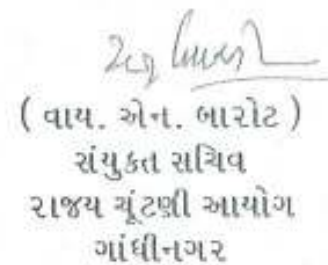 ( વાય. એન. બારોટ )
સંયુકત સચિવ
રાજય ચૂંટણી આયોગ
ગાંધીનગર